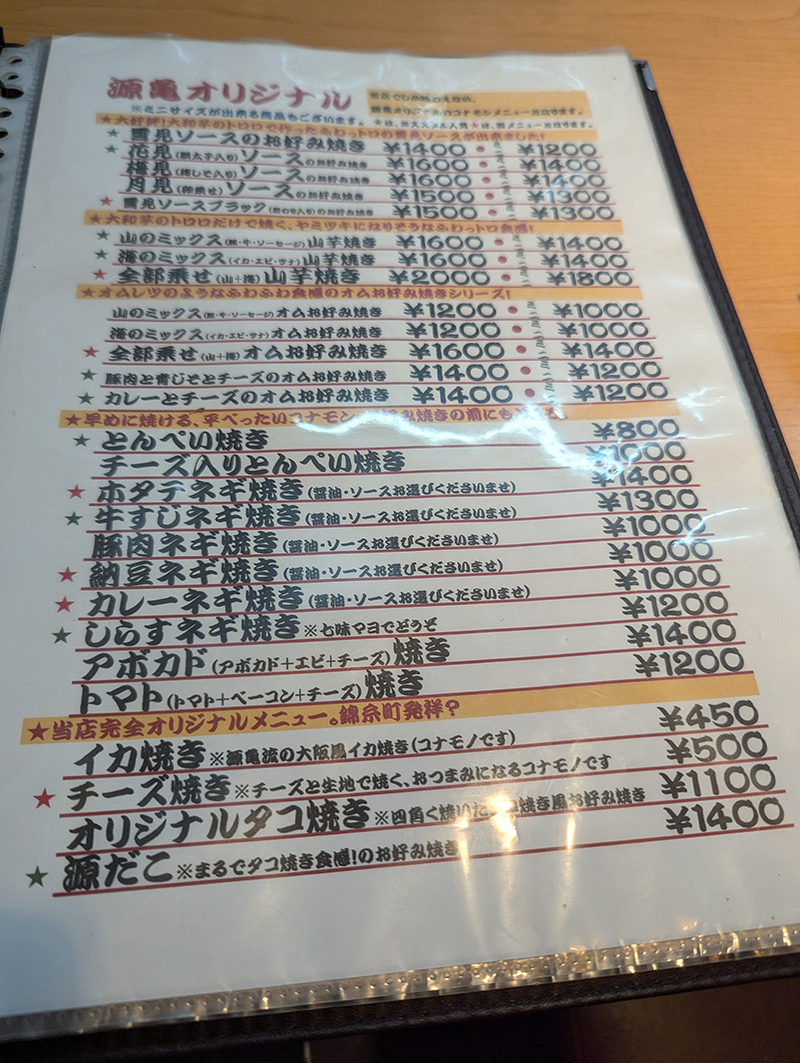 源亀オリジナル
※ミニサイズが出来る商品もございます。
★大好評!大和芋のトロロで作ったふわっトロの雪見ソースが出来ました!
★雪見ソースのお好み焼き ¥1400 ● ミニ ¥1200
★花見(明太子入り)ソースのお好み焼き ¥1600 ● ミニ ¥1400
梅見(梅しそ入り)ソースのお好み焼き ¥1600 ● ミニ ¥1400
月見(卵乗せ)ソースのお好み焼き ¥1500 ● ミニ ¥1300
★雪見ソースブラック のお好み焼き ¥1500 ● ミニ ¥1300
★大和芋のトロロだけで焼く、ヤミツキになりそうなふわっトロ食感!
★山のミックス(豚・牛・ソーセージ)山芋焼き ¥1600 ● ミニ ¥1400
★海のミックス(イカ・エビ・ツナ)山芋焼き ¥1600 ● ミニ ¥1400
★全部乗せ(山+海)山芋焼き ¥2000 ● ミニ ¥1800
★オムレツのようなふわふわ食感のオムお好み焼きシリーズ!
山のミックス(豚・牛・ソーセージ)オムお好み焼き ¥1200 ● ミニ ¥1000
海のミックス(イカ・エビ・ツナ)オムお好み焼き ¥1200 ● ミニ ¥1000
★全部乗せ(山+海)オムお好み焼き ¥1600 ● ミニ ¥1400
★豚肉と青じそとチーズのオムお好み焼き ¥1400 ● ミニ ¥1200
★カレーとチーズのオムお好み焼き ¥1400 ● ミニ ¥1200
★早めに焼ける、平べったいコナモン お好み焼きの前にも
★とんぺい焼き ¥800
チーズ入りとんぺい焼き ¥1000
★ホタテネギ焼き(醤油・ソースお選びくださいませ) ¥1400
★牛すじネギ焼き(醤油・ソースお選びくださいませ) ¥1300
豚肉ネギ焼き(醤油・ソースお選びくださいませ) ¥1000
★納豆ネギ焼き(醤油・ソースお選びくださいませ) ¥1000
★カレーネギ焼き(醤油・ソースお選びくださいませ) ¥1000
★しらすネギ焼き※七味マヨでどうぞ ¥1200
アボカド(アボカド+エビ+チーズ)焼き ¥1400
トマト(トマト+ベーコン+チーズ)焼き ¥1200
★当店完全オリジナルメニュー。錦糸町発祥?
イカ焼き※源亀流の大阪風イカ焼き(コナモノです) ¥450
★チーズ焼き※チーズと生地で焼く、おつまみになるコナモノです ¥500
オリジナルタコ焼き※四角く焼いたタコ焼き風お好み焼き ¥1100
★源だこ※まるでタコ焼き食感!のお好み焼き ¥1400